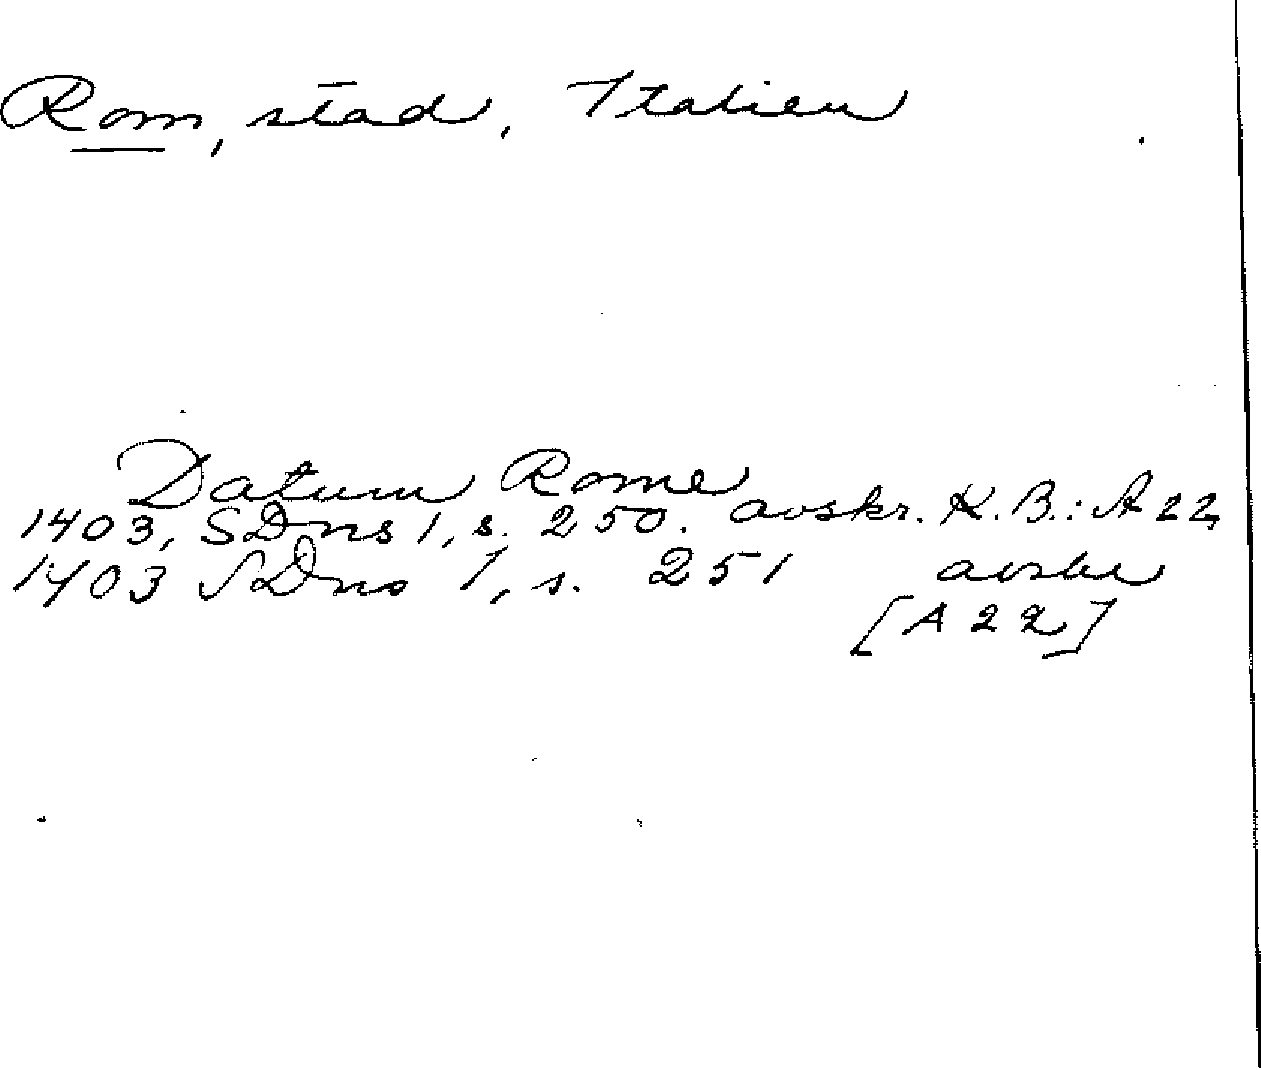 Rom, stad, Italien
Datum Rome
1403, SDns 1, s. 250. avskr. K.B.: A 22
1403 SDns 1, s. 251 avskr
[A 22]